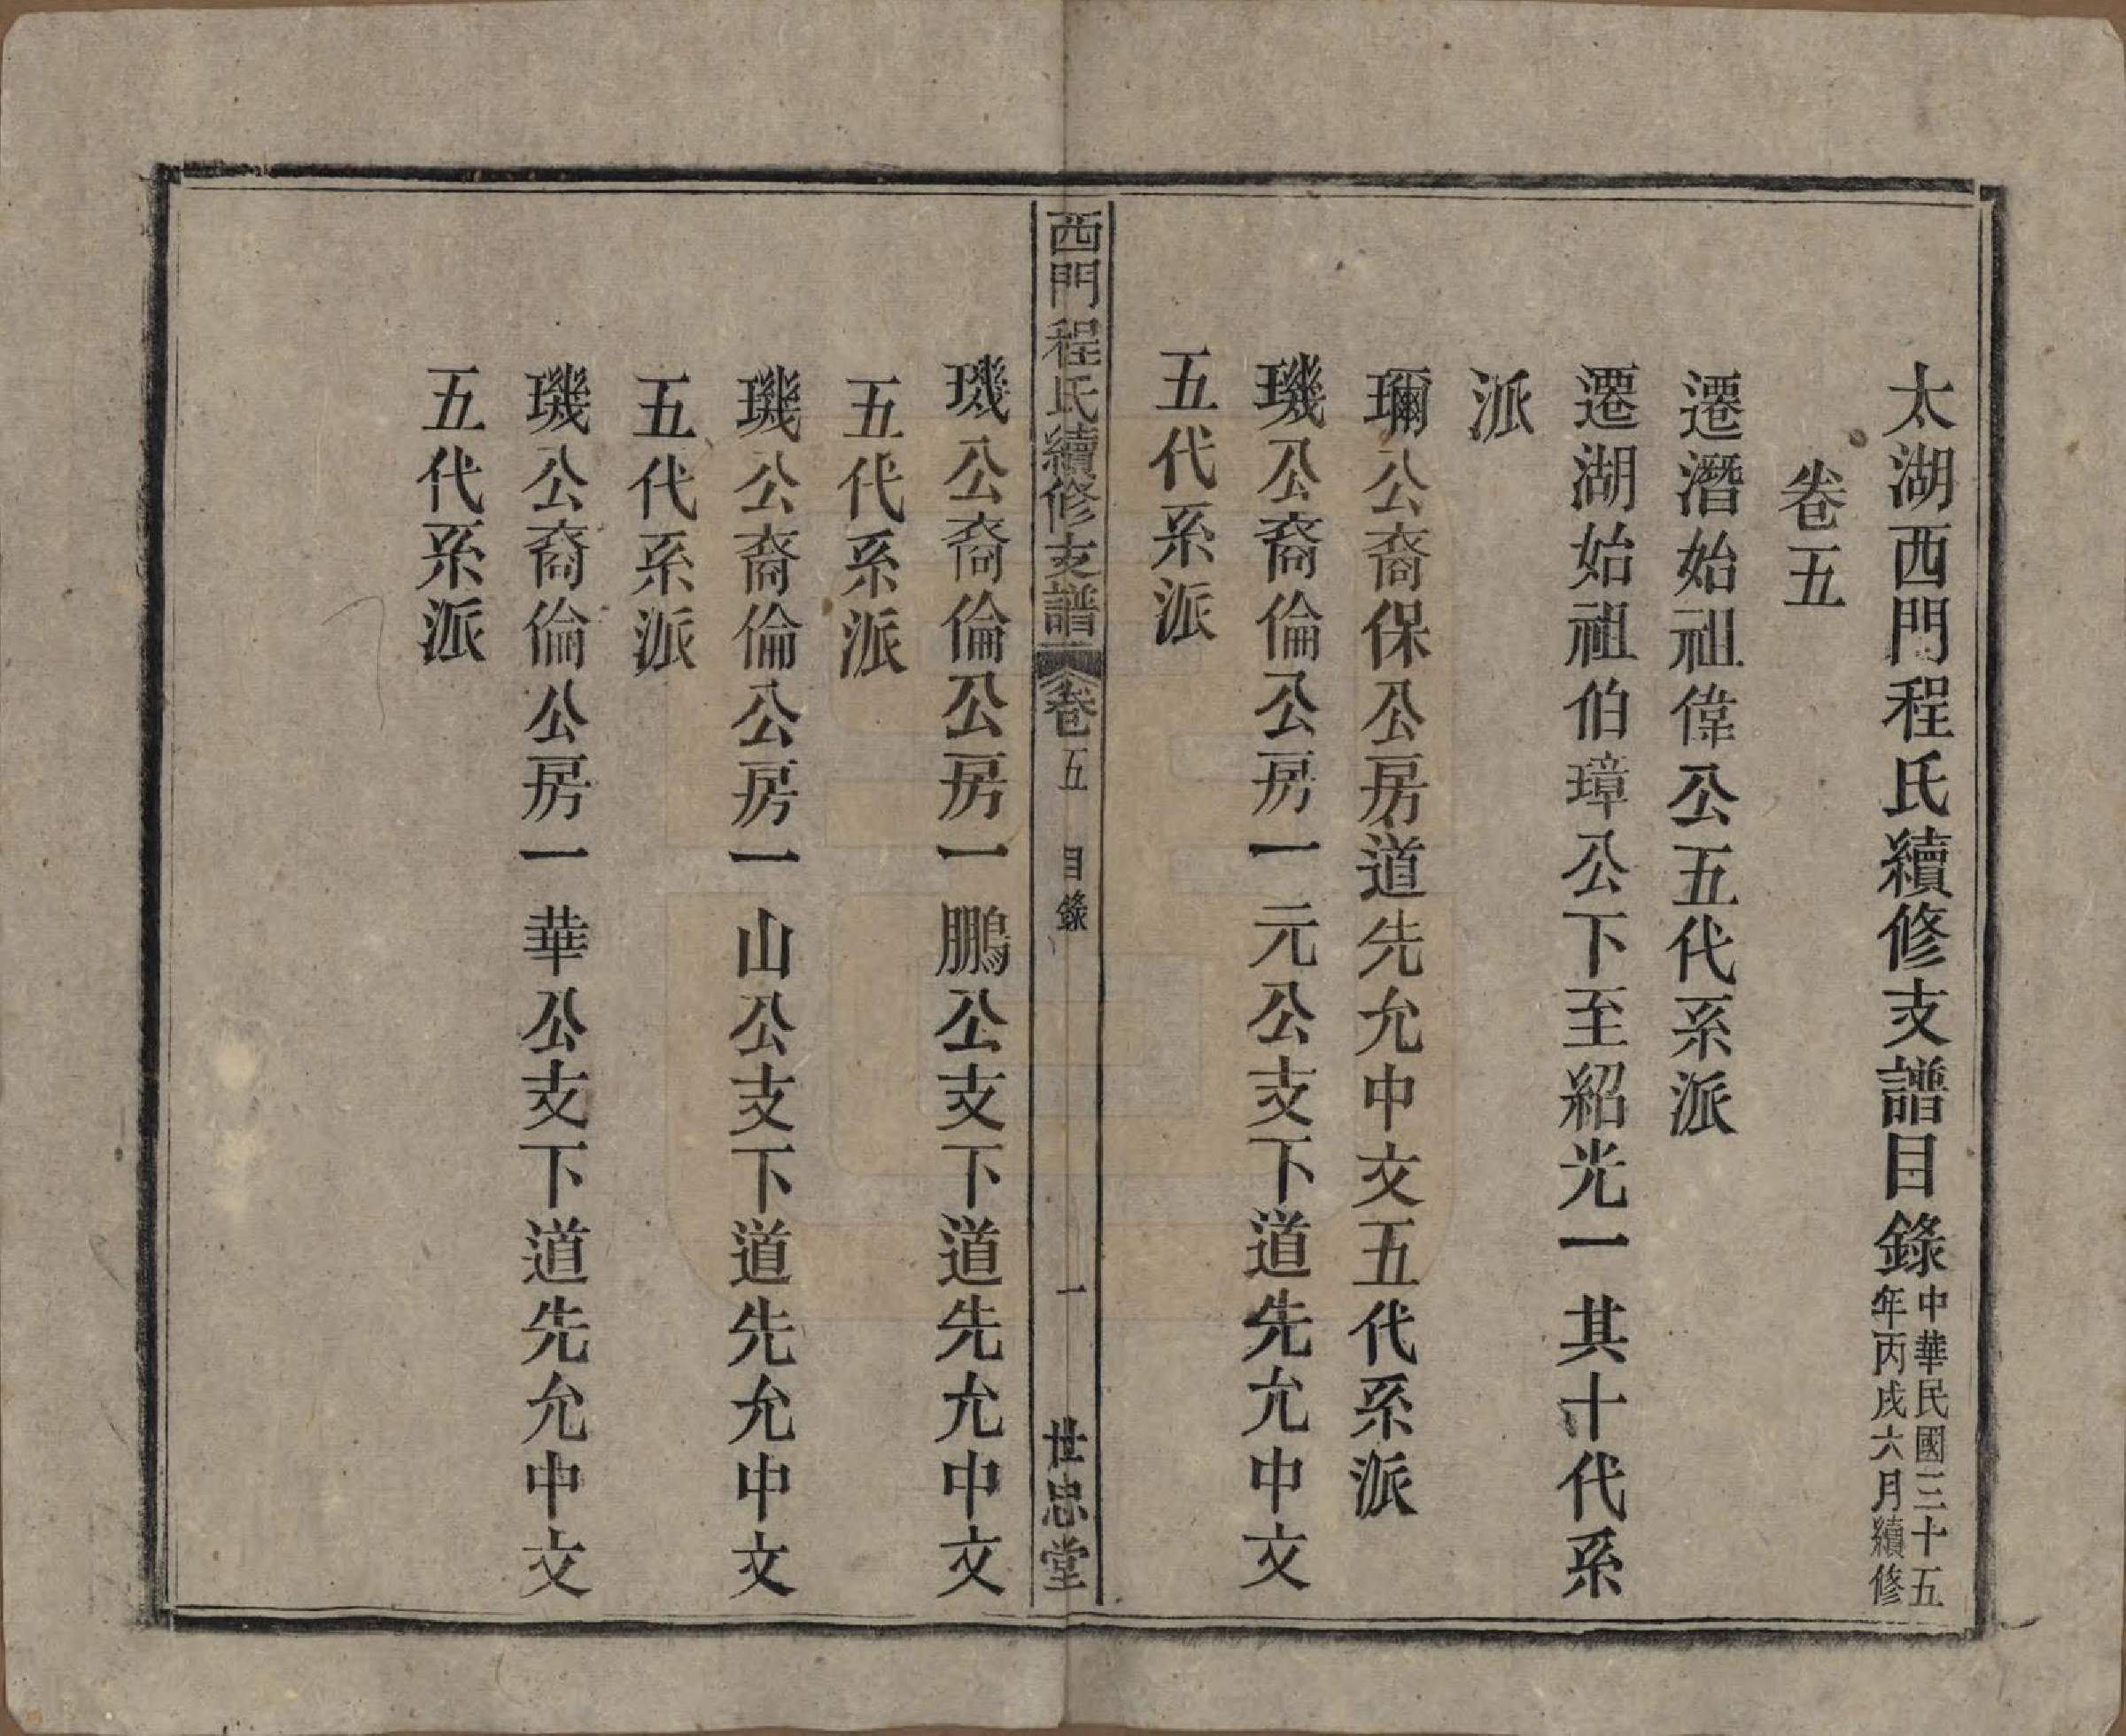 太湖西門程氏續修支譜目錄中華民國三十五
年丙戌六月續修
卷五
遷潛始祖偉公五代系派
遷湖始祖伯璋公下至紹光一其十代系
派
瓓公裔保公房道先允中文五代系派
璣公裔倫公房一元公支下道先允中文
五代系派
西門程氏續修支譜 卷五 目錄 一 世忠堂
璣公裔倫公房一鵬公支下道先允中文
五代系派
璣公裔倫公房一山公支下道先允中文
五代系派
璣公裔倫公房一華公支下道先允中文
五代系派